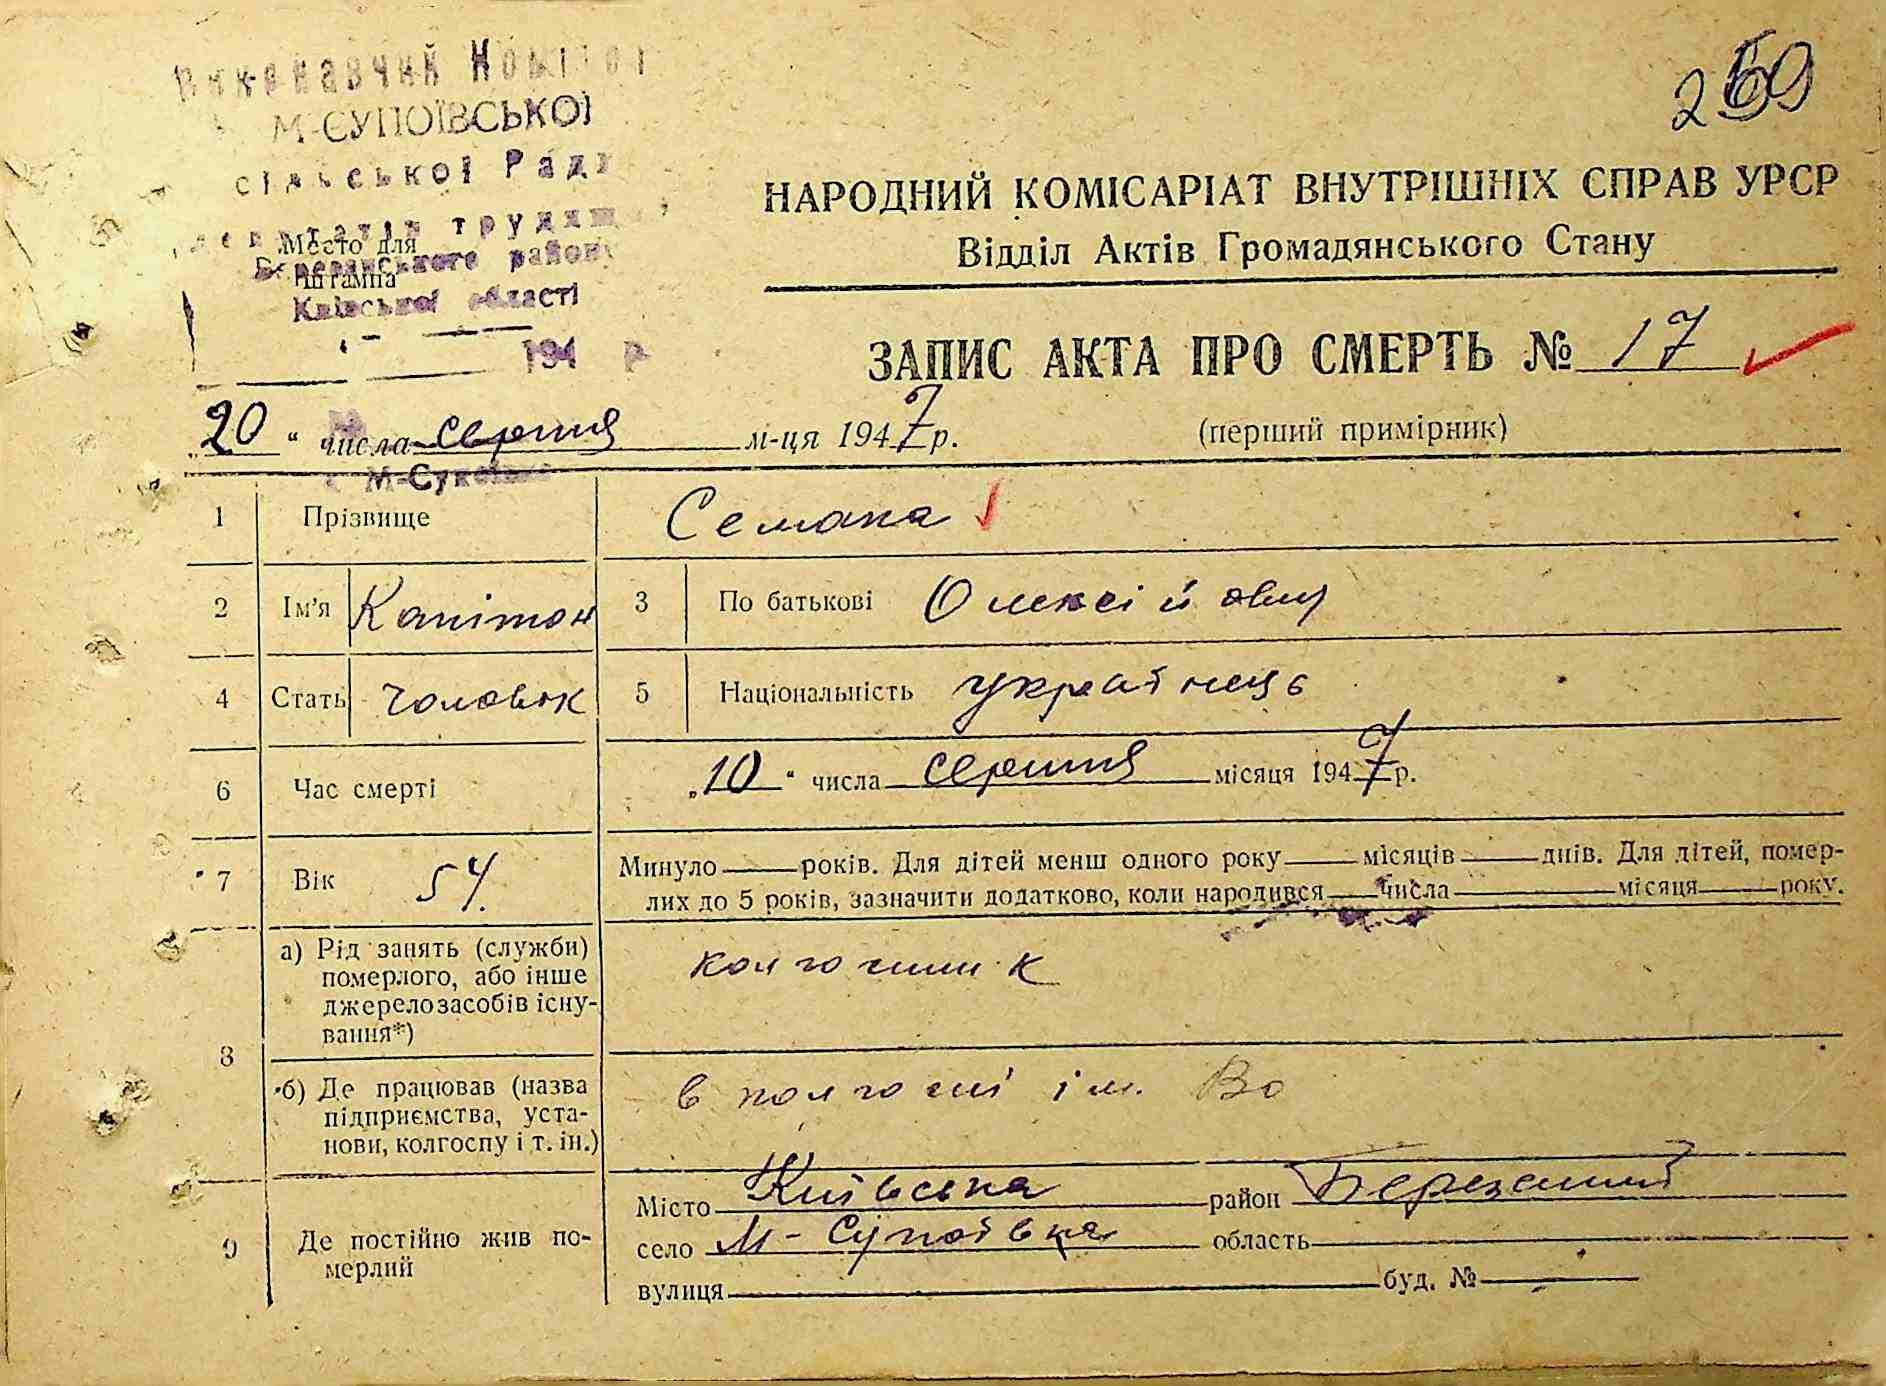 Виконавчий Комітет
М-СУПОЇВСЬКОЇ
сільської Ради
депутатів трудящ
Место для
Березанського району
штампа
Київської області
194 р
НАРОДНИЙ КОМІСАРІАТ ВНУТРІШНІХ СПРАВ УРСР
Відділ Актів Громадянського Стану
ЗАПИС АКТА ПРО СМЕРТЬ № 17
„20“ числа серпня м-ця 1947 р.
(перший примірник)
с М-Супоївка
1 Прізвище Семака
2 Ім'я Капітон 3 По батькові Олексійович
4 Стать чоловік 5 Національність українець
6 Час смерті „10“ числа серпня місяця 1947 р.
7 Вік 54. Минуло років. Для дітей менш одного року місяців днів. Для дітей, помер-
лих до 5 років, зазначити додатково, коли народився числа місяця року.
8 а) Рід занять (служби)
померлого, або інше
джерело засобів існу-
вання*)
колгоспник
б) Де працював (назва
підприємства, уста-
нови, колгоспу і т. ін.)
в колгоспі ім. Во
9 Де постійно жив по-
мерлий
Місто Київська район Березанський
село М-Супоївка область
вулиця буд. №